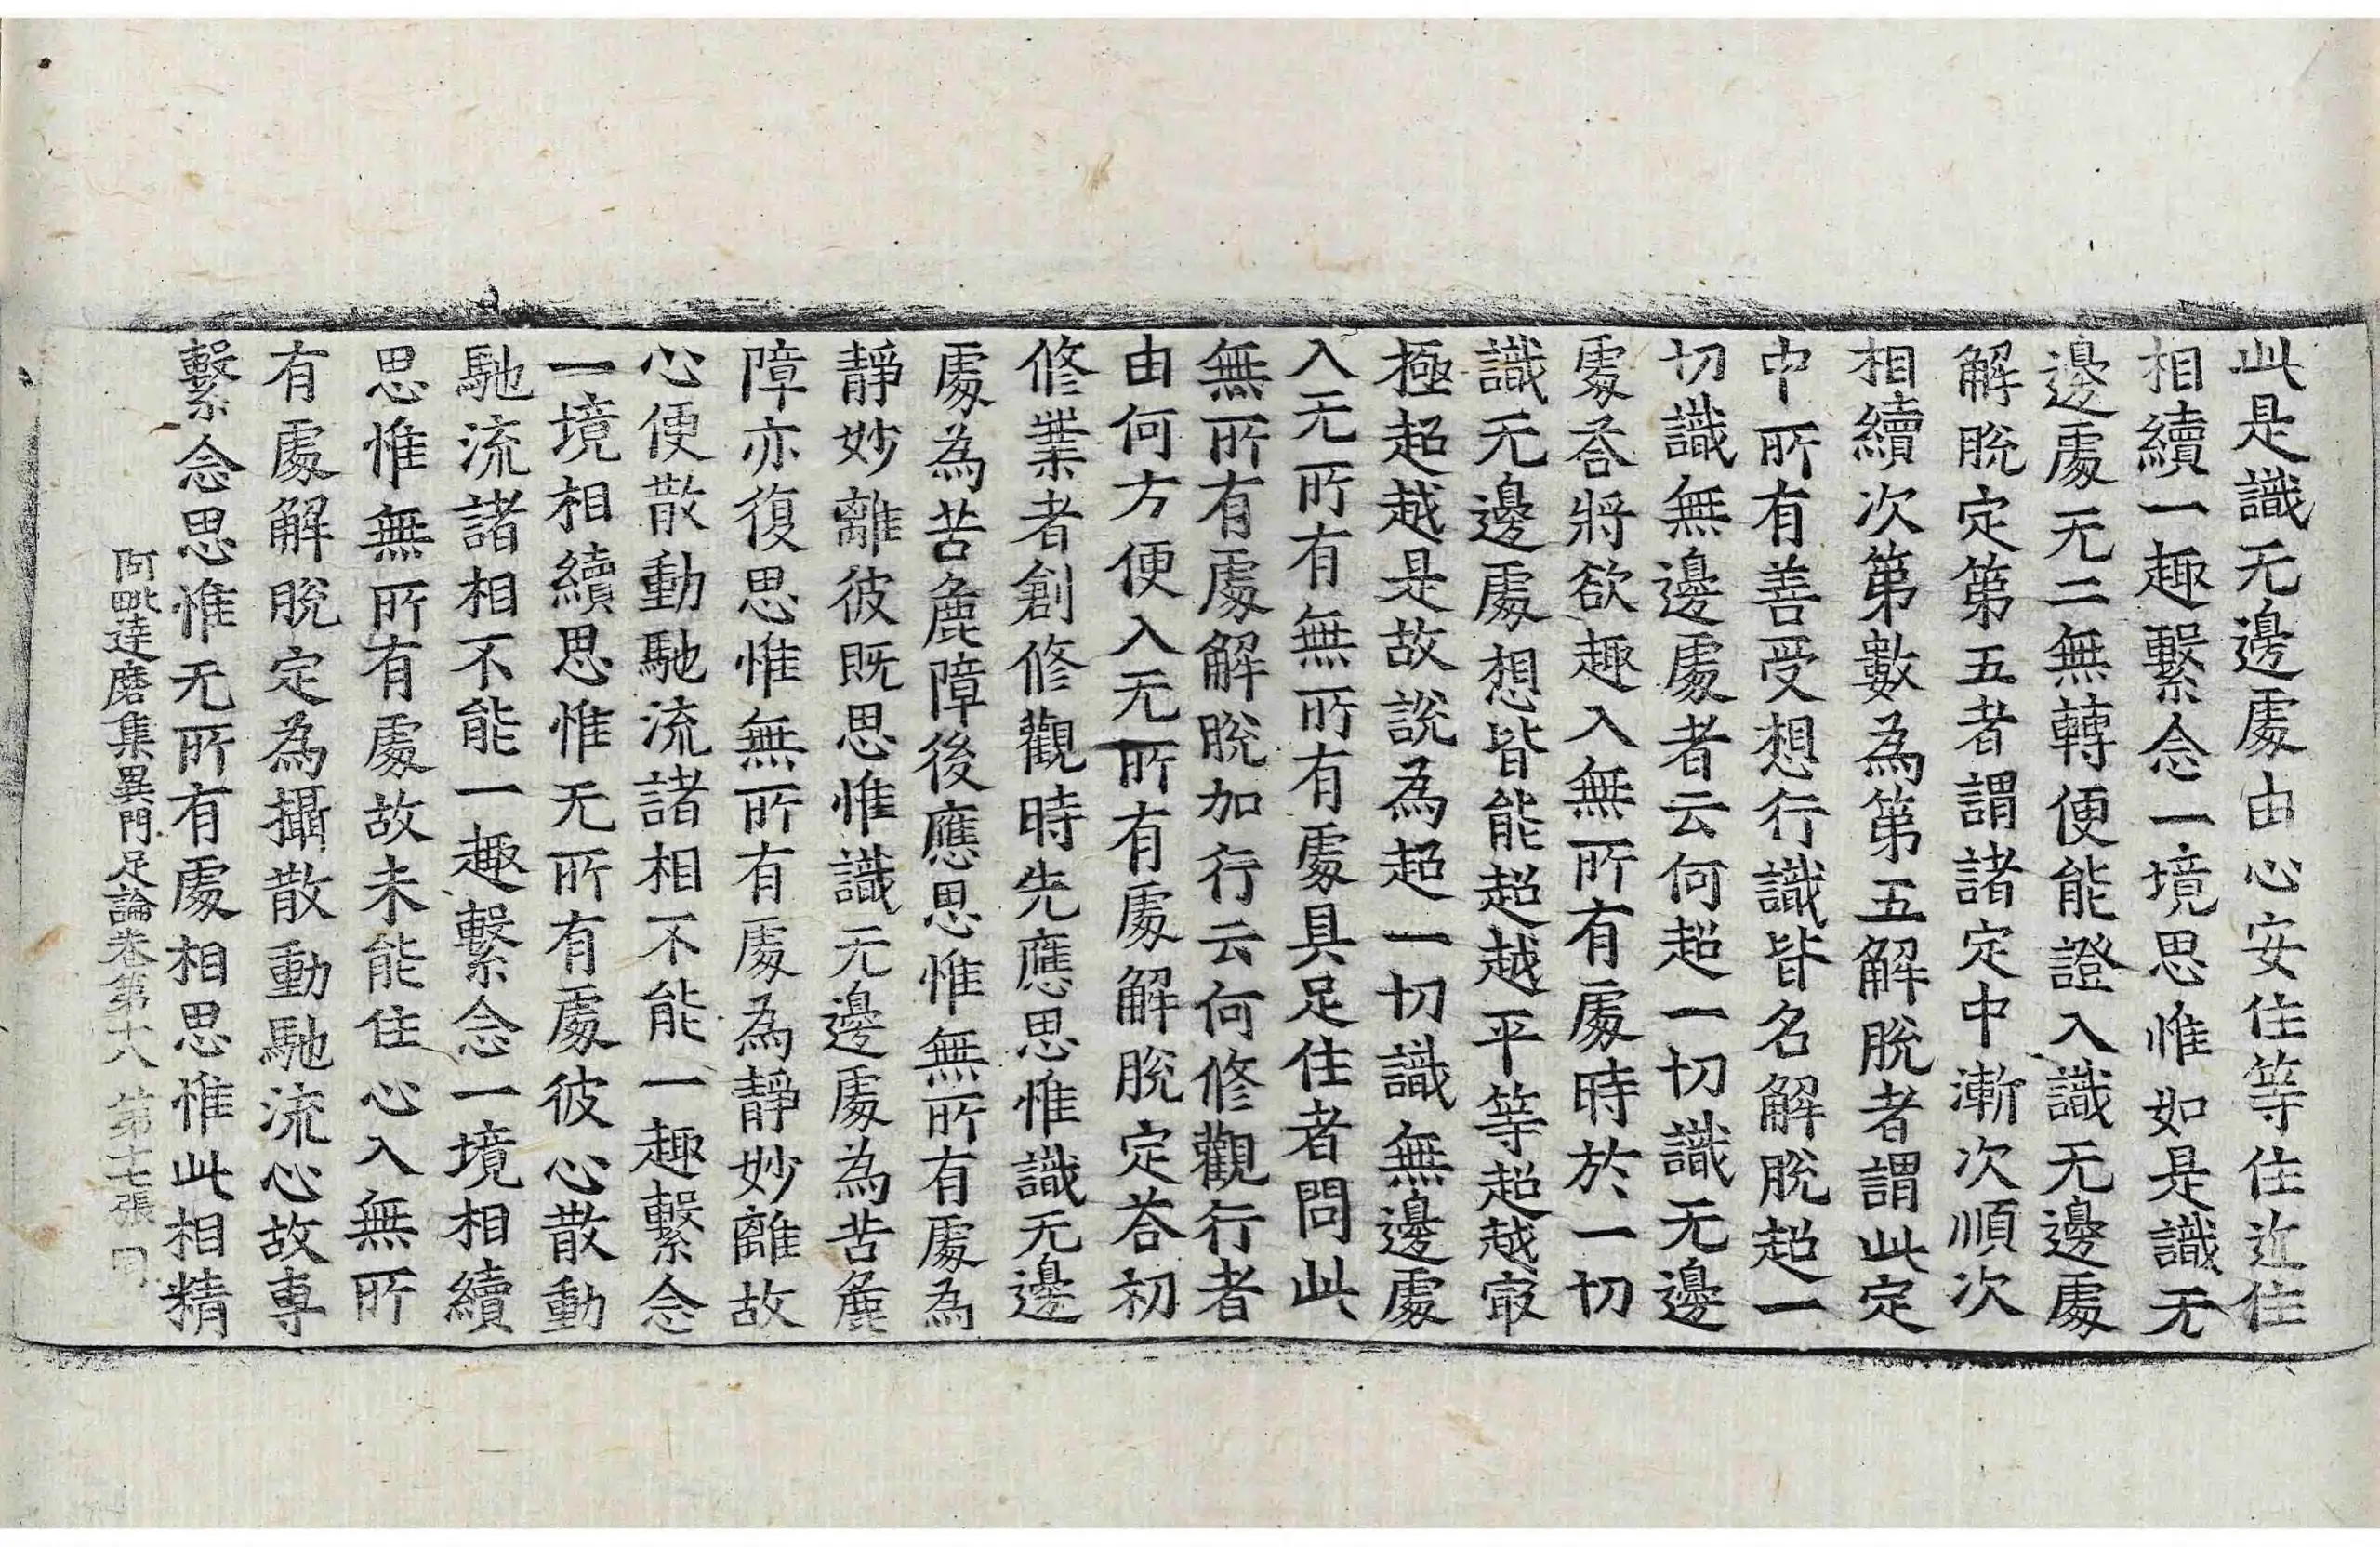 此是識无邊處由心安住等住近住
相續一趣繫念一境思惟如是識无
邊處无二無轉便能證入識无邊處
解脫定第五者謂諸定中漸次順次
相續次第數為第五解脫者謂此定
中所有善受想行識皆名解脫超一
切識無邊處者云何超一切識无邊
處荅將欲趣入無所有處時於一切
識无邊處想皆能超越平等超越㝡
極超越是故說為超一切識無邊處
入无所有無所有處具足住者問此
無所有處解脫加行云何修觀行者
由何方便入无所有處解脫定荅初
修業者創修觀時先應思惟識无邊
處為苦麁障後應思惟無所有處為
靜妙離彼既思惟識无邊處為苦麁
障亦復思惟無所有處為靜妙離故
心便散動馳流諸相不能一趣繫念
一境相續思惟无所有處彼心散動
馳流諸相不能一趣繫念一境相續
思惟無所有處故未能住心入無所
有處解脫定為攝散動馳流心故專
繫念思惟无所有處相思惟此相精
阿毗達磨集異門足論卷第十八 第十七張 同